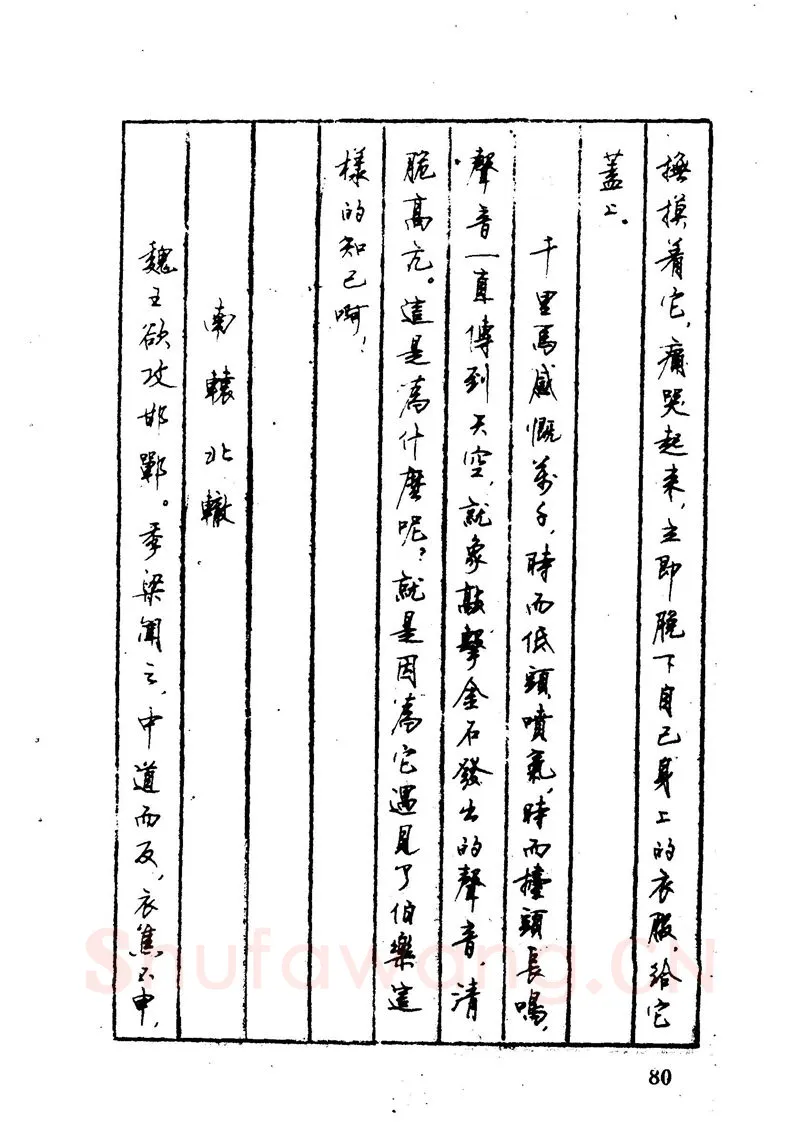 撫摸着它，痛哭起来，立即脱下自己身上的衣服，給它
蓋上。
千里馬感慨萬千，時而低頭噴氣，時而擡頭長鳴，
聲音一直傳到天空，就象敲擊金石發出的聲音，清
脆高亢。這是爲什麽呢？就是因爲它遇見了伯樂這
樣的知己啊！
南轅北轍
魏王欲攻邯鄲。季梁聞之，中道而反，衣焦不申，
80
Shufawang.CN